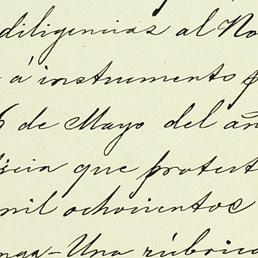 diligencias al No
á instrumento p
6 de Mayo del añ
icia que protest
mil ochocientos
nga - Una rúbrica